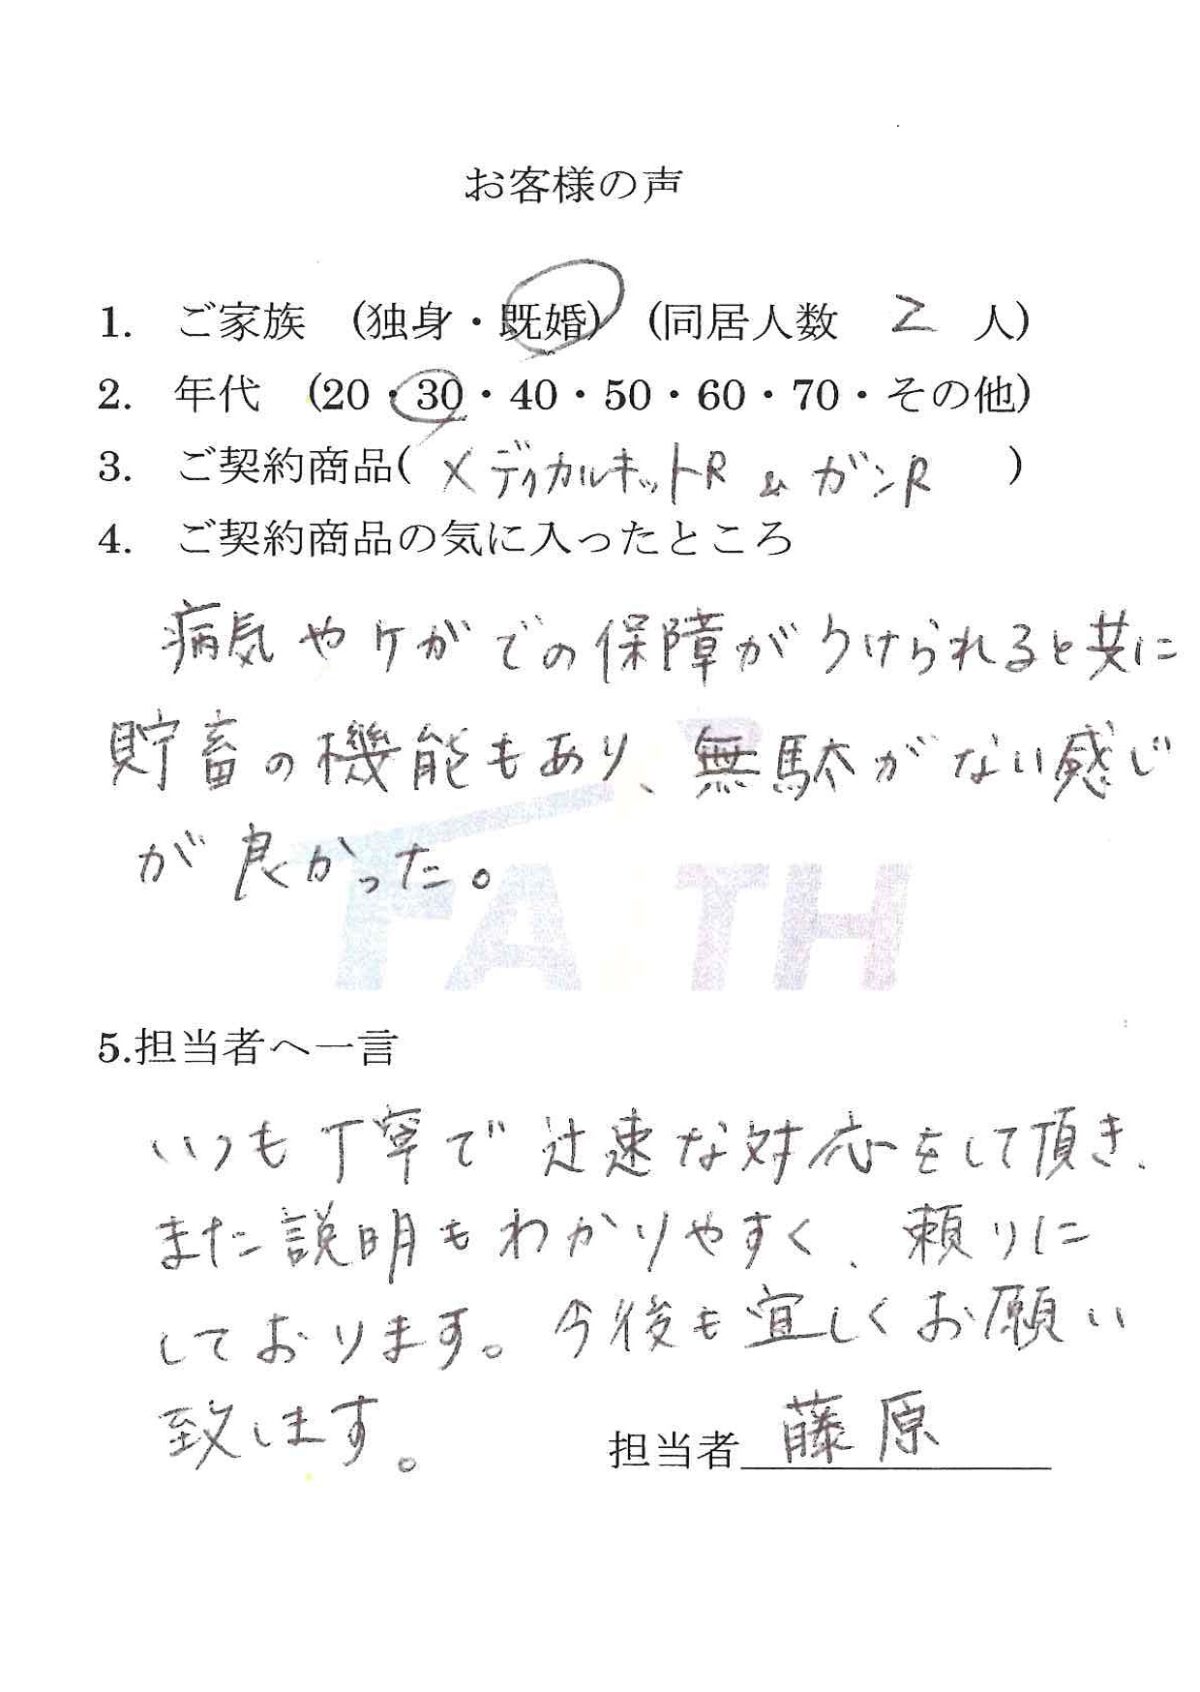 お客様の声
1. ご家族 (独身・既婚) (同居人数 2 人)
2. 年代 (20・30・40・50・60・70・その他)
3. ご契約商品( メディカルキットR & ガンR )
4. ご契約商品の気に入ったところ
病気やケガでの保障がうけられると共に
貯畜の機能もあり、無駄がない感じ
が良かった。
FAITH
5.担当者へ一言
いつも丁寧で迅速な対応をして頂き、
また説明もわかりやすく、頼りに
しております。今後も宜しくお願い
致します。
担当者 藤原